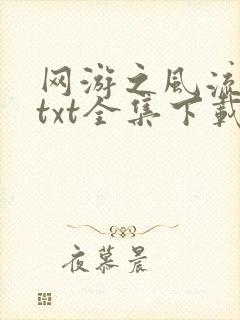 网游之风流
txt全集下载
夜慕晨